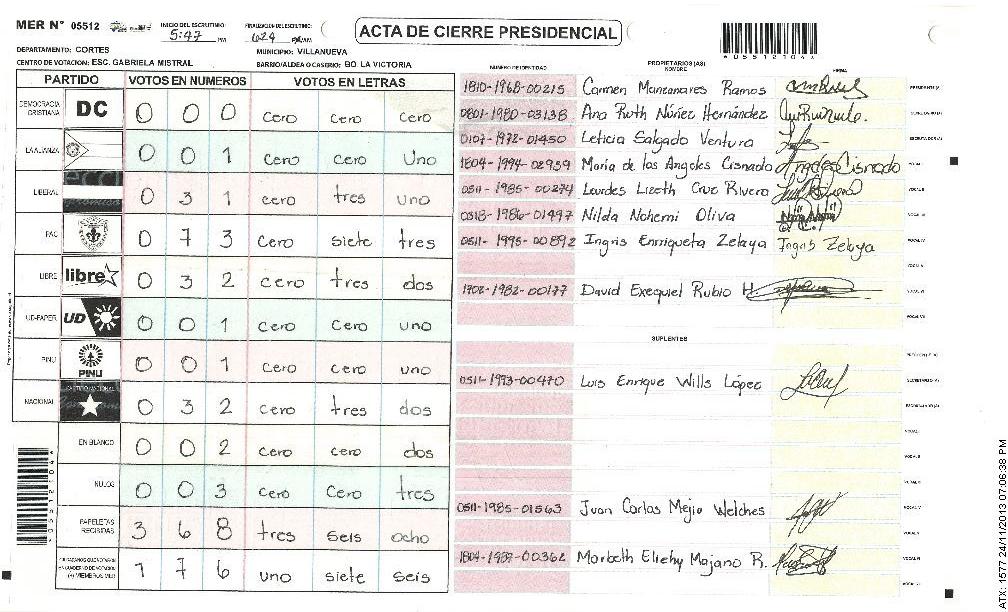 MER N° 05512
INICIO DEL ESCRUTINIO: 5:47 PM
FINALIZACION DEL ESCRUTINIO: 624
ACTA DE CIERRE PRESIDENCIAL
*05512104*
DEPARTAMENTO: CORTES
MUNICIPIO: VILLANUEVA
CENTRO DE VOTACION: ESC. GABRIELA MISTRAL
BARRIO/ALDEA O CASERIO: BO LA VICTORIA
PARTIDO VOTOS EN NUMEROS VOTOS EN LETRAS
DEMOCRACIA CRISTIANA DC 0 0 0 cero cero cero
LA ALIANZA 0 0 1 cero cero Uno
LIBERAL 0 3 1 cero tres uno
PAC 0 7 3 cero siete tres
LIBRE libre 0 3 2 cero tres dos
UD-FAPER UD 0 0 1 cero cero uno
PINU PINU 0 0 1 cero cero uno
NACIONAL PARTIDO NACIONAL 0 3 2 cero tres dos
EN BLANCO 0 0 2 cero cero dos
NULOS 0 0 3 cero cero tres
PAPELETAS RECIBIDAS 3 6 8 tres seis ocho
1 7 6 uno siete seis
NUMERO DE IDENTIDAD
PROPIETARIOS (AS)
NOMBRE
FIRMA
1810-1968-00215 Carmen Manzanares Ramos
0801-1980-03138 Ana Ruth Núñez Hernández
0107-1972-01450 Leticia Salgado Ventura
1804-1994-02959 María de los Angeles Cisnado Angeles Cisnado
0511-1985-00274 Lourdes Lizeth Cruz Rivera
0318-1986-01497 Nilda Nohemi Oliva
0511-1995-00892 Ingris Enriqueta Zelaya Ingris Zelaya
1702-1982-00177 David Exequiel Rubio H
SUPLENTES
0511-1993-00470 Luis Enrique Wills López
0511-1985-01563 Juan Carlos Mejia Welches
1804-1987-00362
ATX: 1577 24/11/2013 07:06:38 PM